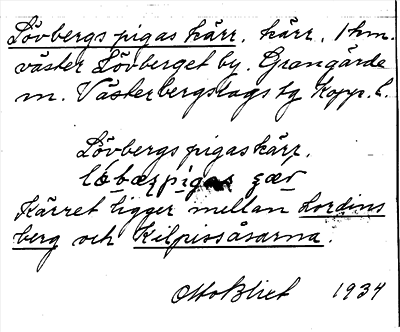 Lövbergs pigas kärr, kärr, 1 hm.
väster Lövberget by. Grangärde
m. Västerbergslags tg Kopp. l.
Lövbergspigaskärr.
Kärret ligger mellan Lordins
berg och Kilpissåsarna.
Otto Blixt 1934